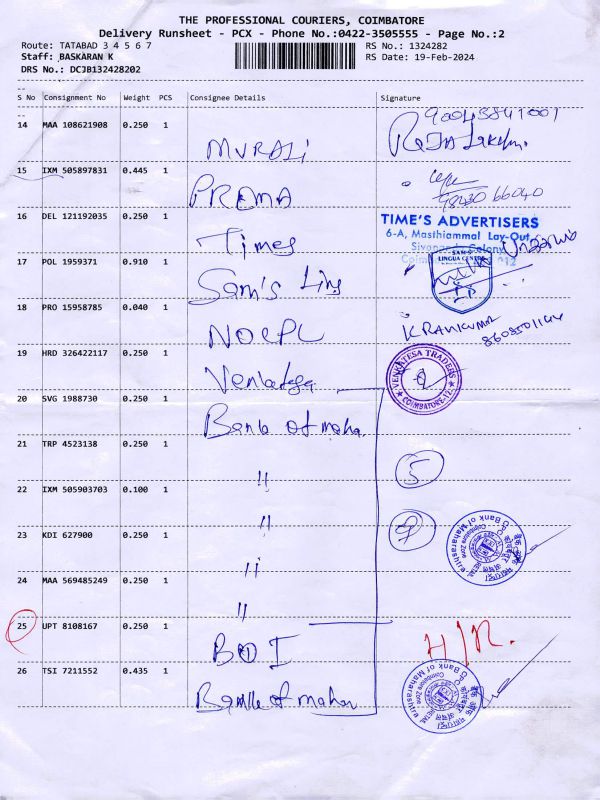 THE PROFESSIONAL COURIERS, COIMBATORE
Delivery Runsheet - PCX - Phone No.:0422-3505555 - Page No.:2
Route: TATABAD 3 4 5 6 7 RS No.: 1324282
Staff: BASKARAN K RS Date: 19-Feb-2024
DRS No.: DCJB132428202
S No Consignment No Weight PCS Consignee Details Signature
14 MAA 108621908 0.250 1
MURALI
15 IXM 505897831 0.445 1
PREMA 98430 66040
16 DEL 121192035 0.250 1
Times
TIME'S ADVERTISERS
6-A, Masthiammal Lay-Out,
17 POL 1959371 0.910 1
Sam's Ling
LINGUA CENTRE
18 PRO 15958785 0.040 1
NOCPL
K RAVIKUMAR
19 HRD 326422117 0.250 1
Venkatesa
VENKATESA TRADERS
COIMBATORE-12.
20 SVG 1988730 0.250 1
Bank of maha
21 TRP 4523138 0.250 1
" 5
22 IXM 505903703 0.100 1
" 9
23 KDI 627900 0.250 1
"
Bank of Maharashtra
24 MAA 569485249 0.250 1
"
25 UPT 8108167 0.250 1
BOI
26 TSI 7211552 0.435 1
Bank of maha
Bank of Maharashtra